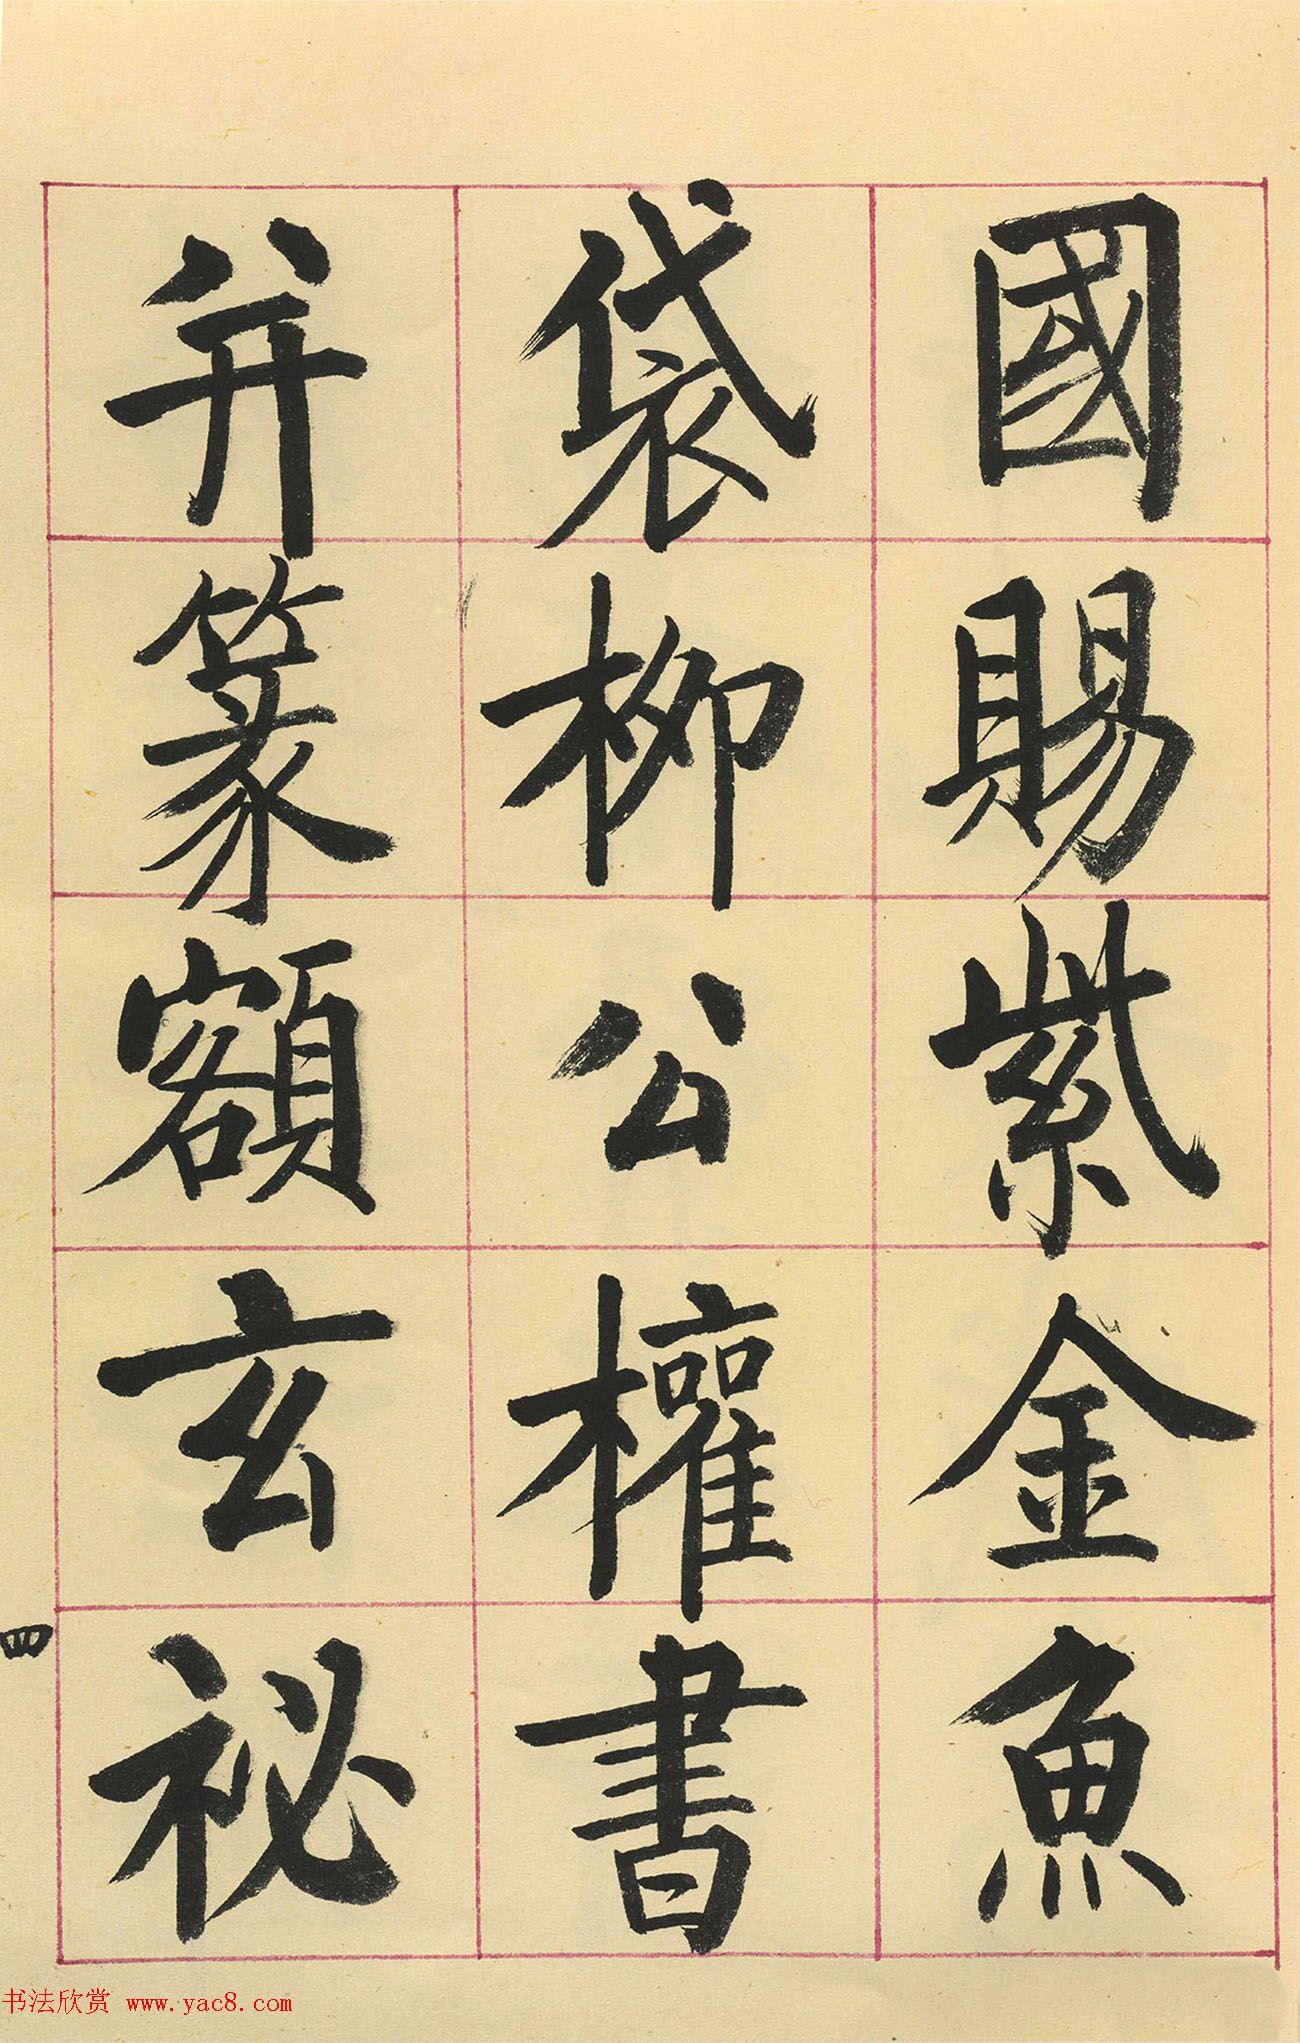 國賜紫金魚
袋柳公權書
并篆額玄祕
四
书法欣赏 www.yac8.com